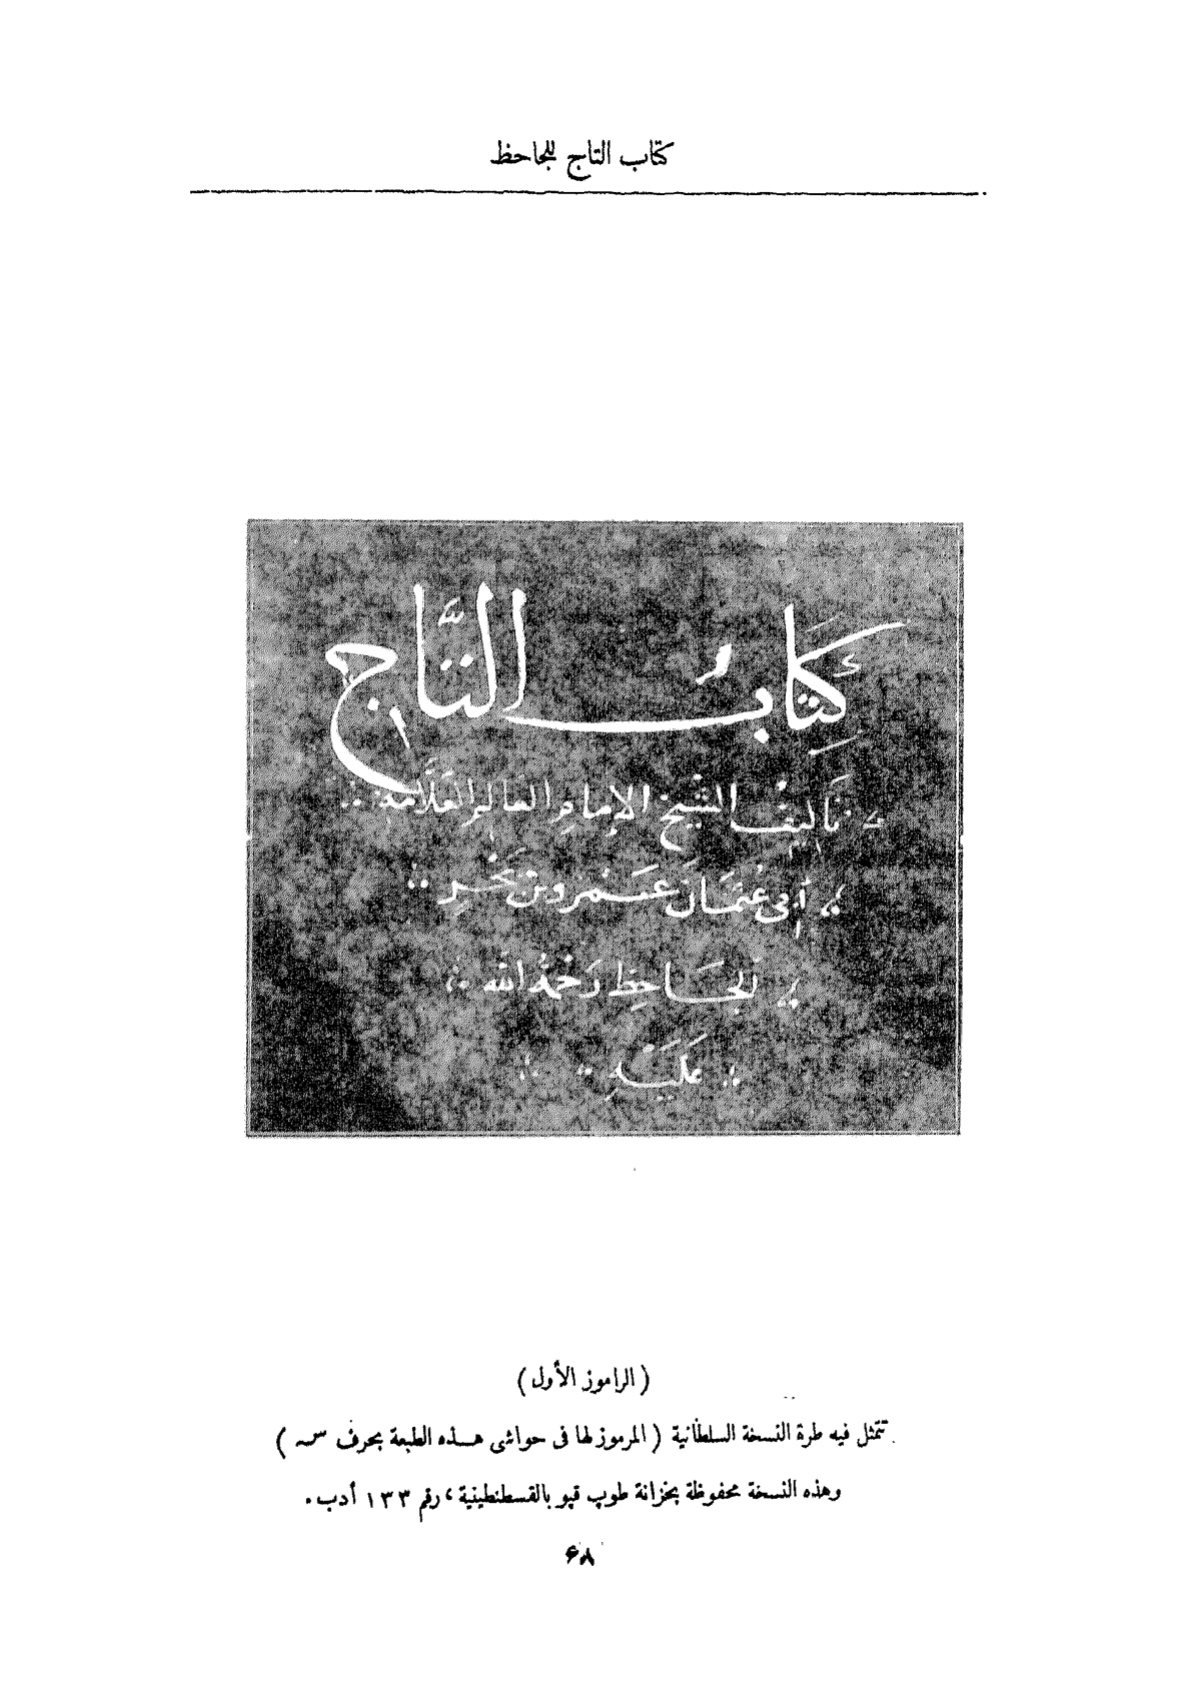 كتاب التاج للجاحظ
كِتَابُ التَّاج
تَأليفُ الشَّيخ الإمامِ العَالِمِ العَلَّامَة
أبي عُثمَانَ عَمرو بن بَحْرٍ
الجَاحِظِ رَحْمَةُ الله
عَلَيْهِ
(الراموز الأول)
تتمثل فيه طرة النسخة السلطانية (المرموز لها فى حواشى هذه الطبعة بحرف سـ)
وهذه النسخة محفوظة بخزانة طوپ قپو بالقسطنطينية، رقم ١٣٣ أدب.
۶۸